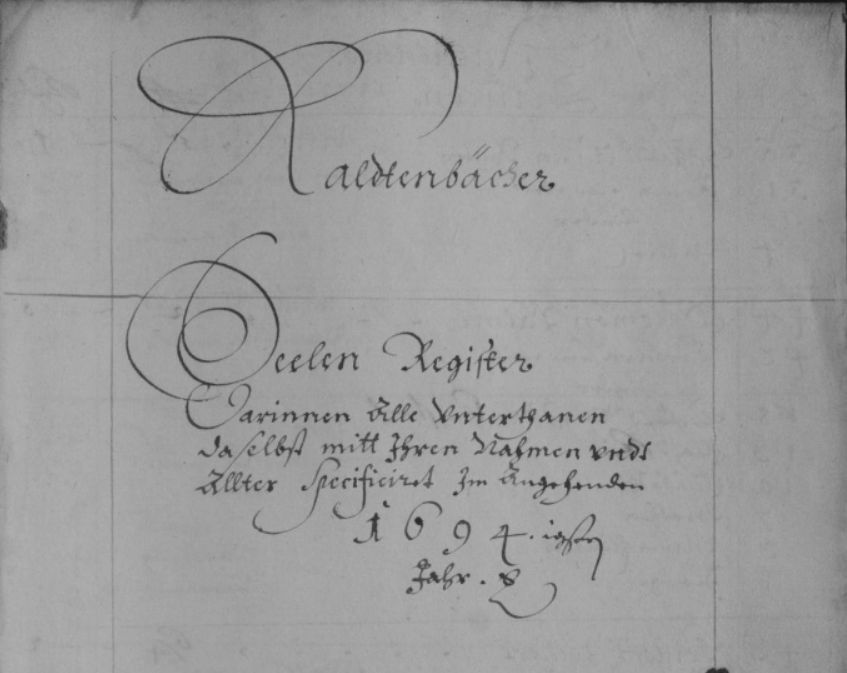 Kaldtenbächer
Seelen Register
Darinnen Alle Vnterthanen
daselbst mitt Ihren Nahmen vndt
Allter Specificiret Im Angehenden
1694.igsten
Jahr.